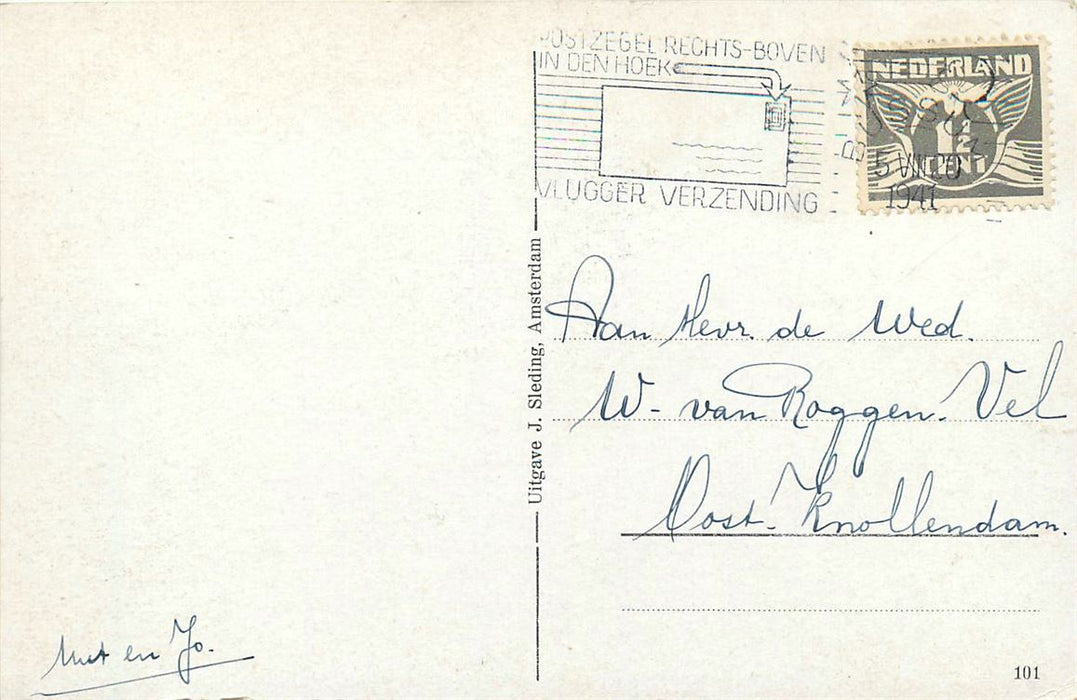 POSTZEGEL RECHTS-BOVEN
IN DEN HOEK
VLUGGER VERZENDING
BUSSUM
5 VIII 20
1941
NEDERLAND
1
CENT
Uitgave J. Sleding, Amsterdam
Aan Mevr. de Wed.
W. van Roggen-Vel
Oost-Knollendam.
en Jo.
101